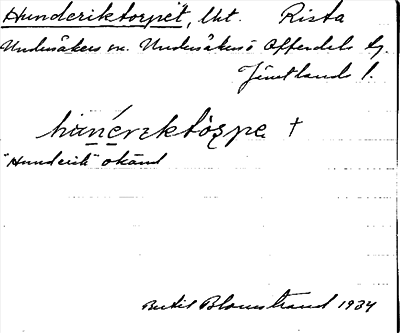 Hunderiktorpet, Utt. Rista
Undersåkers sn. Undersåkers o Offerdals tg.
Jämtlands l.
húnériktòrpe †
"Hunderik" okänd
Bertil Blomstrand 1934